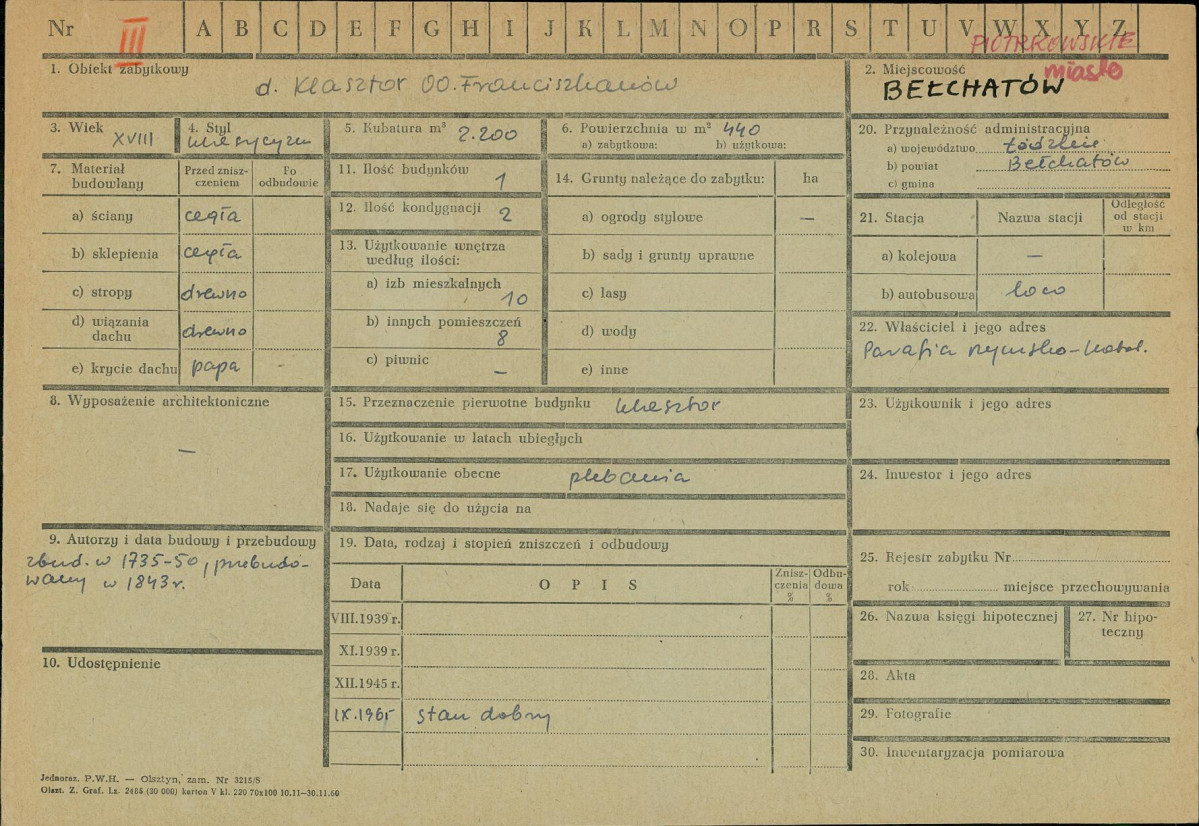 Nr III A B C D E F G H I J K L M N O P R S T U V W X Y Z
PIOTRKOWSKIE
miasto
1. Obiekt zabytkowy
d. Klasztor OO. Franciszkanów
2. Miejscowość
BEŁCHATÓW
3. Wiek
XVIII
4. Styl
klasycyzm
5. Kubatura m³ 2.200
6. Powierzchnia w m² 440
a) zabytkowa: b) użytkowa:
7. Materiał budowlany
Przed znisz-
czeniem
Po
odbudowie
a) ściany cegła
b) sklepienia cegła
c) stropy drewno
d) wiązania
dachu drewno
e) krycie dachu papa -
8. Wyposażenie architektoniczne
—
9. Autorzy i data budowy i przebudowy
zbud. w 1735-50, przebudo-
wany w 1843 r.
10. Udostępnienie
11. Ilość budynków 1
12. Ilość kondygnacji 2
13. Użytkowanie wnętrza
według ilości:
a) izb mieszkalnych
10
b) innych pomieszczeń
8
c) piwnic —
14. Grunty należące do zabytku: ha
a) ogrody stylowe —
b) sady i grunty uprawne
c) lasy
d) wody
e) inne
15. Przeznaczenie pierwotne budynku klasztor
16. Użytkowanie w latach ubiegłych
17. Użytkowanie obecne plebania
18. Nadaje się do użycia na
19. Data, rodzaj i stopień zniszczeń i odbudowy
Data OPIS
Znisz-
czenia
%
Odbu-
dowa
%
VIII.1939 r.
XI.1939 r.
XII.1945 r.
IX.1965 stan dobry
20. Przynależność administracyjna
a) województwo łódzkie
b) powiat Bełchatów
c) gmina
21. Stacja Nazwa stacji
Odległość
od stacji
w km
a) kolejowa —
b) autobusowa loco
22. Właściciel i jego adres
Parafia rzymsko-katol.
23. Użytkownik i jego adres
24. Inwestor i jego adres
25. Rejestr zabytku Nr
rok miejsce przechowywania
26. Nazwa księgi hipotecznej
27. Nr hipo-
teczny
28. Akta
29. Fotografie
30. Inwentaryzacja pomiarowa
Jednoraz. P.W.H. — Olsztyn, zam. Nr 3215/S
Olszt. Z. Graf. Lz. 2465 (30 000) karton V kl. 220 70x100 10.11—30.11.60